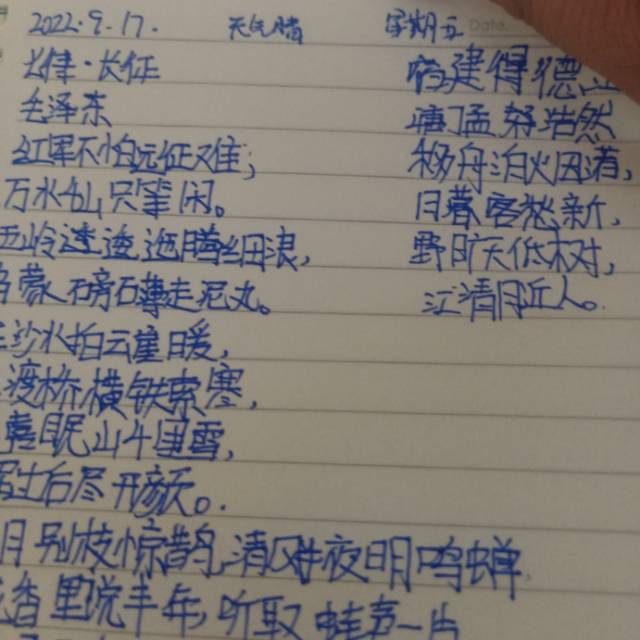 2022.9.17. 天气晴 星期五 Date.
七律·长征
毛泽东
红军不怕远征难;
万水千山只等闲。
五岭逶迤腾细浪,
乌蒙磅礴走泥丸。
沙水拍云崖暖,
渡桥横铁索寒,
喜岷山千里雪,
过后尽开颜。
宿建得德
唐 孟 浩然
移舟泊烟渚,
日暮客愁新,
野旷天低树,
江清月近人。
月别枝惊鹊,清风半夜明鸣蝉,
香里说丰年,听取蛙声一片